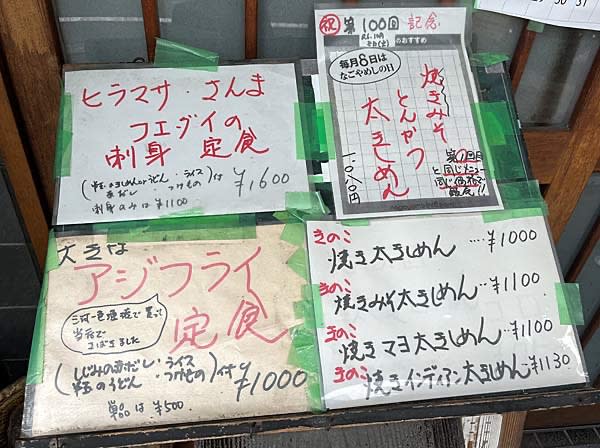 ヒラマサ・さんま
フエダイの
刺身 定食
ライス
つけもの
は ¥1600
刺身のみは ¥1100
祝 第100回 記念
のおすすめ
毎月8日は
なごやめしの日
焼きみそ
とんかつ
太きしめん
1,010円
第1回目
と同じメニュー
同じ価格で
大きな
アジフライ
定食
三河一色漁港で買って
当店で
さばきました
(しじみの赤だし・ライス
半玉のうどん・つけもの)付
¥1000
単品は ¥500
きのこ
焼き太きしめん…¥1000
きのこ
焼きみそ太きしめん…¥1100
きのこ
焼きマヨ太きしめん…¥1100
きのこ
焼きインディアン太きしめん ¥1130